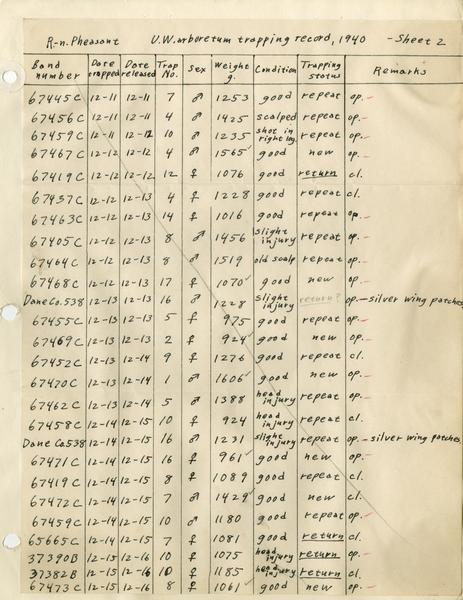 R-n. Pheasant U.W. arboretum trapping record, 1940 - Sheet 2
Band number Date trapped Date released Trap No. Sex Weight g. Condition Trapping status Remarks
67445C 12-11 12-11 7 ♂ 1253 good repeat op.-
67456C 12-11 12-11 4 ♂ 1425 scalped repeat op.-
67459C 12-11 12-12 10 ♂ 1235 shot in right leg repeat op.-
67467C 12-12 12-12 4 ♂ 1565✓ good new op.-
67419C 12-12 12-12 12 ♀ 1076 good return cl.
67437C 12-12 12-13 4 ♀ 1228 good repeat cl.
67463C 12-12 12-13 14 ♀ 1016 good repeat op.-
67405C 12-12 12-13 8 ♂ 1456 slight injury repeat op.-
67464C 12-12 12-13 8 ♂ 1519 old scalp repeat op.-
67468C 12-12 12-13 17 ♀ 1070✓ good new op.-
Dane Co. 538 12-13 12-13 16 ♂ 1228 slight injury return? op.-silver wing patches
67455C 12-13 12-13 5 ♀ 975 good repeat op.-
67469C 12-13 12-13 2 ♀ 924✓ good new op.-
67452C 12-13 12-14 9 ♀ 1276 good repeat cl.
67470C 12-13 12-14 1 ♂ 1606✓ good new op.-
67462C 12-13 12-14 5 ♂ 1388 head injury repeat op.-
67458C 12-14 12-15 10 ♀ 924 head injury repeat cl.
Dane Co. 538 12-14 12-15 16 ♂ 1231 slight injury repeat op.-silver wing patches
67471C 12-14 12-15 16 ♀ 961✓ good new op.-
67419C 12-14 12-15 8 ♀ 1089 good repeat cl.
67472C 12-14 12-15 7 ♂ 1429✓ good new cl.
67459C 12-14 12-15 10 ♂ 1180 good repeat op.-
65665C 12-14 12-15 7 ♀ 1081 good return cl.
37390B 12-15 12-16 10 ♀ 1075 head injury return op.-
37382B 12-15 12-16 10 ♀ 1185 head injury return cl.
67473C 12-15 12-16 8 ♀ 1061✓ good new op.-